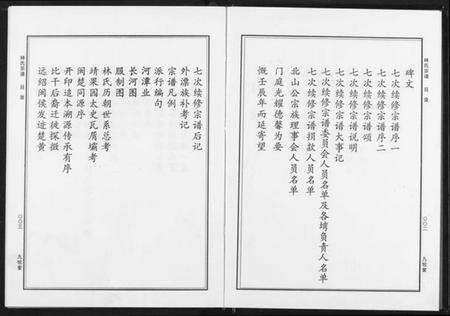 碑文
七次续修宗谱序一
七次续修宗谱序二
七次续修宗谱颂
七次续修宗谱说明
七次续修宗谱大事记
七次续修宗谱委员会人员名单及各埼负责人名单
七次续修宗谱捐款人员名单
北山公宗族理事会人员名单
门庭光耀德馨为要
慨壬辰年而延寄望
林氏宗谱
目录
〇〇二
九牧堂
七次续修宗谱后记
外漂族补考记
宗谱凡例
派行编句
河潭业
长河图
服制图
林氏历朝世系总考
靖果园太史瓦屑墙考
闽楚同源序
开印追本溯源传承有序
比干后裔迁徙探微
远绍闽侯发迹楚黄
林氏宗谱
目录
〇〇三
九牧堂